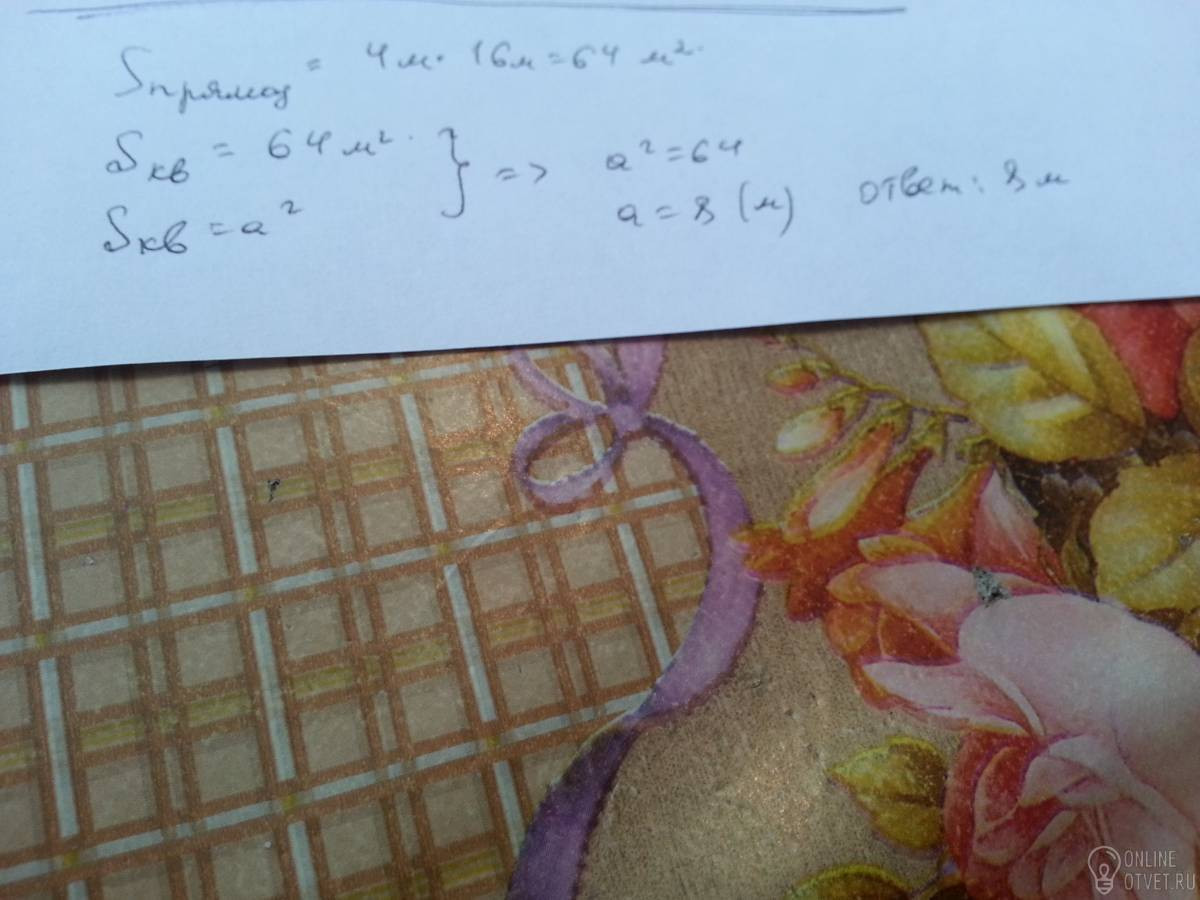 Sпрямоу = 4м · 16м = 64 м².
Sкв = 64 м².
Sкв = a²
} => a² = 64
a = 8 (м)
ответ: 8 м
ONLINE
OTVET.RU